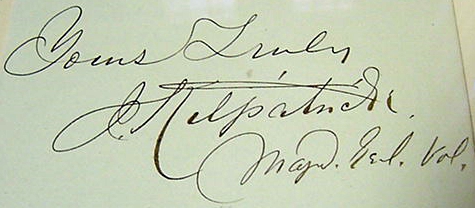 Yours Truly
J. Kilpatrick.
Majr. Genl. Vol.